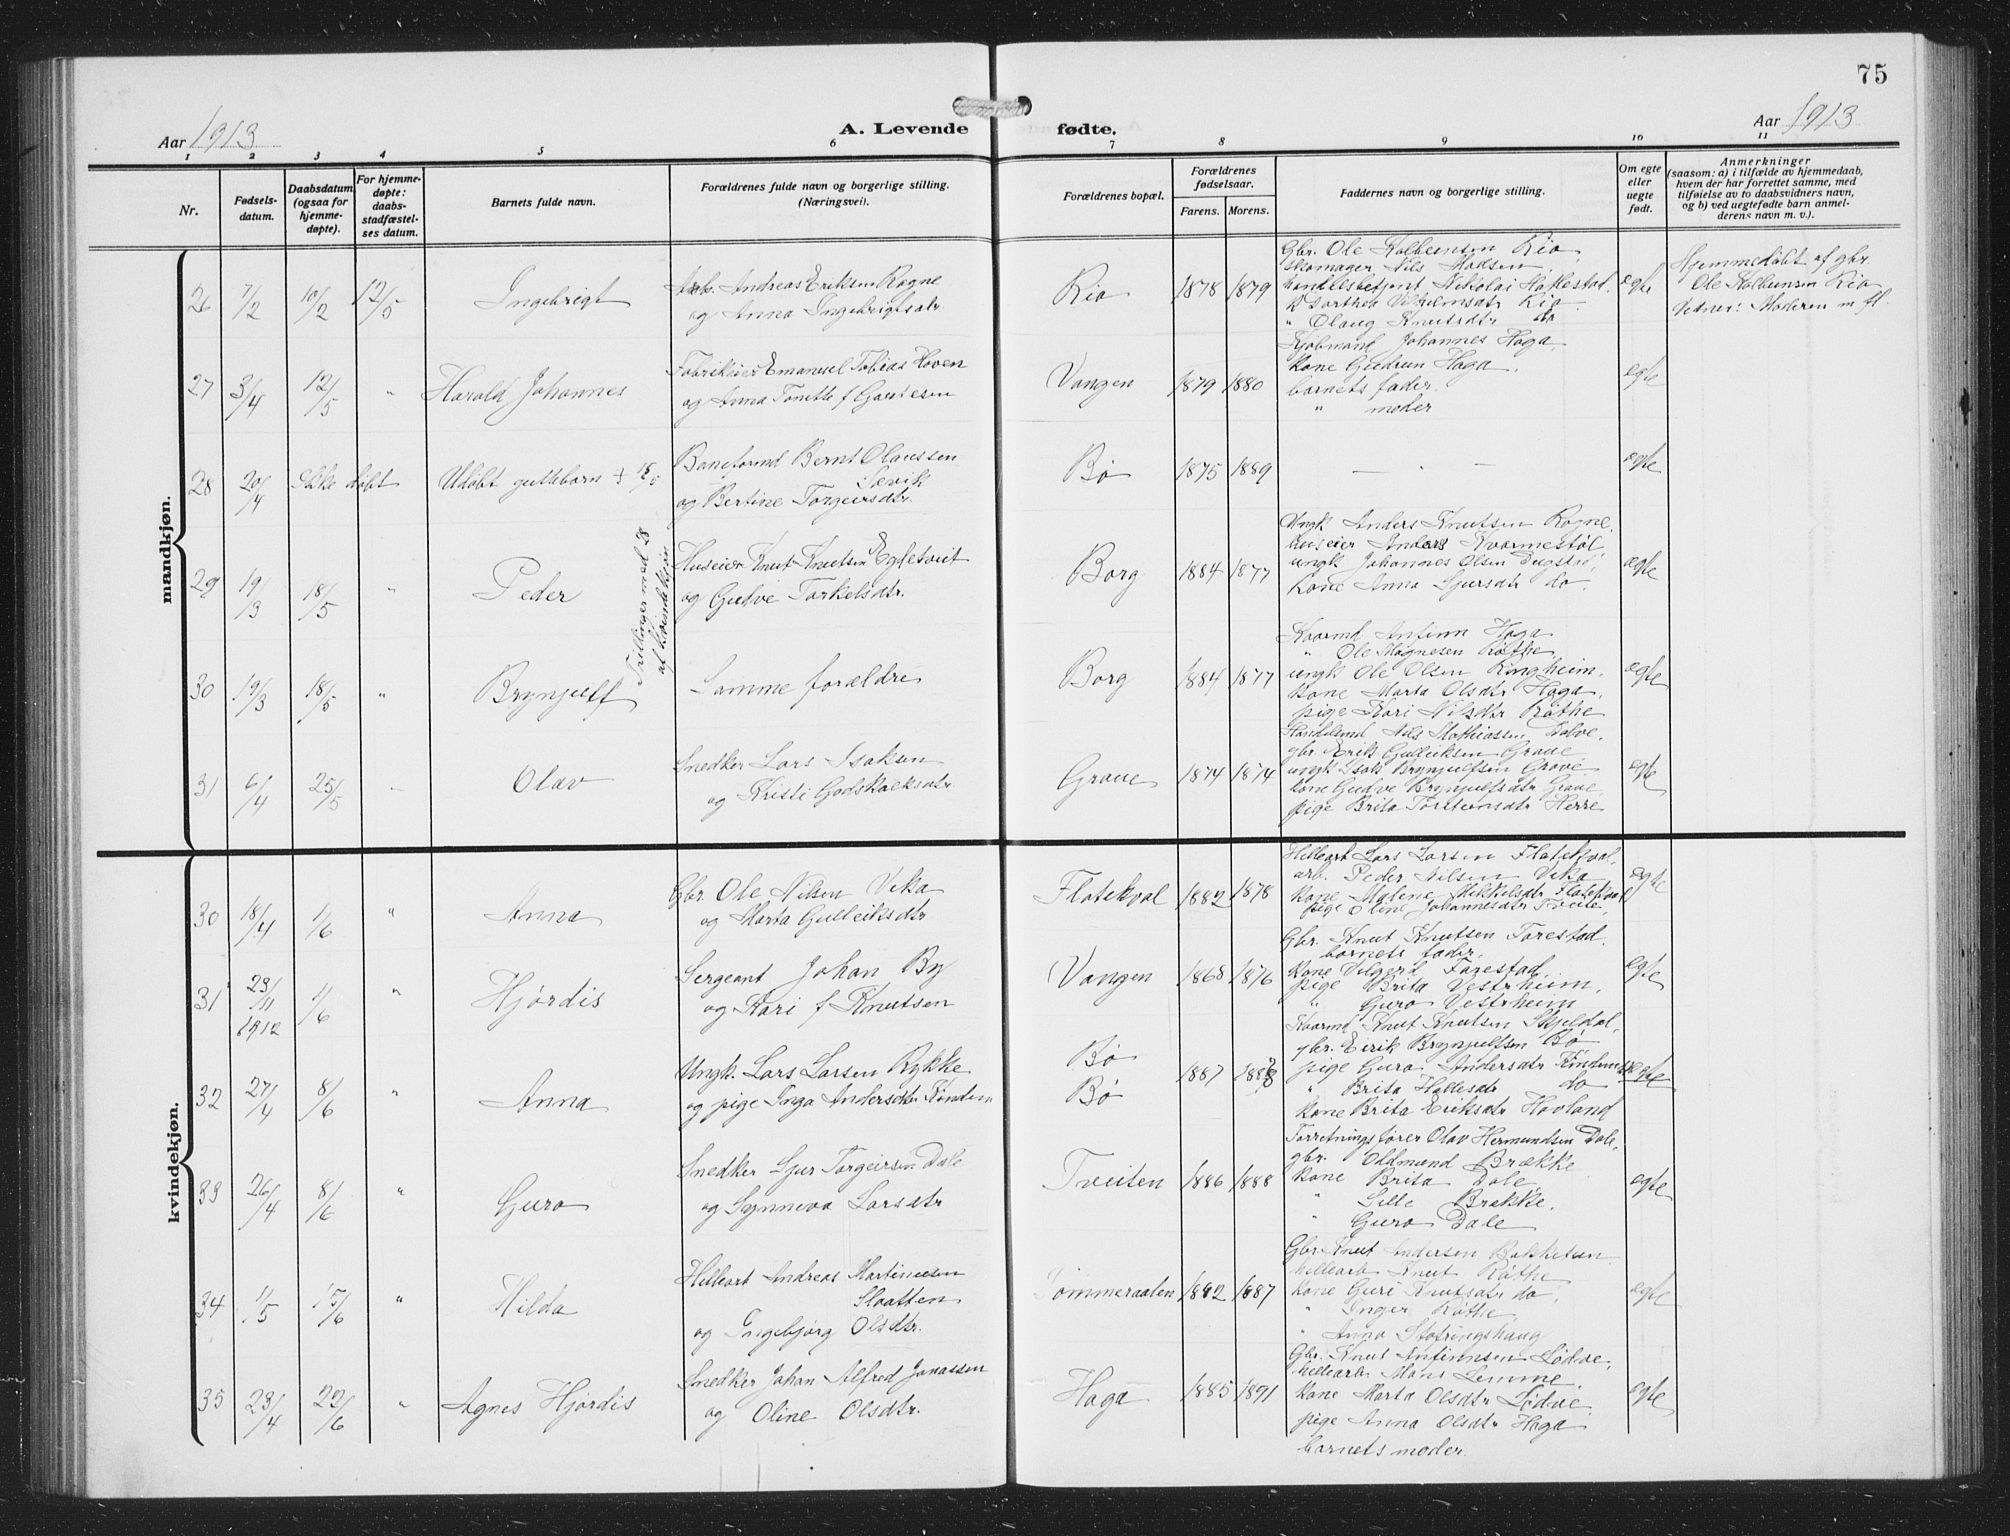 75
Aar 1913
A. Levende fødte.
Aar 1913
1 2 3 4 5 6 7 8 9 10 11
Nr.
Fødsels-
datum.
Daabsdatum
(ogsaa for
hjemme-
døpte).
For hjemme-
døpte:
daabs-
stadfæstel-
ses datum.
Barnets fulde navn.
Forældrenes fulde navn og borgerlige stilling.
(Næringsvei).
Forældrenes bopæl.
Forældrenes
fødselsaar.
Farens. Morens.
Faddernes navn og borgerlige stilling.
Om egte
eller
uegte
født.
Anmerkninger
(saasom: a) i tilfælde av hjemmedaab,
hvem der har forrettet samme, med
tilføielse av to daabsvidners navn,
og b) ved uegtefødte barn anmel-
derens navn m. v.).
mandkjøn.
26 7/2 10/2 12/5 Ingebrigt
Arb. Andreas Eriksen Rogne
og Anna Ingebrigtsdtr.
Rio 1878 1879
Gbr. Ole Kolbeinsen Rio
skomager Nils Madsen
handelsbetjent Nikolai Hatlestad.
K Dorthea Vilhelmsdtr Rio
" Olaug Knutsdtr do
egte
Hjemmedøbt af gbr.
Ole Kolbeinsen Rio
Vidner: Moderen m fl.
27 3/4 12/5 " Harald Johannes
Fabrikeier Emanuel Tobias Hoven
og Anna Tonette f Gautesen
Vangen 1879 1880
Kjøbmand Johannes Haga,
kone Gudrun Haga,
barnets fader.
" moder
egte
28 20/4 Ikke døbt Udøbt guttebarn + 15/5
Baneformd Bernt Olaussen
Sævik
og Bertine Torgeirsdtr.
Bø 1875 1889
— - -
egte
29 19/3 18/5 " Peder
Trillinger med 28
af kvindekjøn
Huseier Knut Knutsen Egdetveit
og Gudve Torkelsdtr.
Borg 1884 1877
Ungk Anders Knutsen Rogne,
huseier Anders Kvarmestøl,
ungk Johannes Olsen Dugstad,
kone Anna Sjursdtr do.
egte
30 19/3 18/5 " Brynjulf
Samme forældre
Borg 1884 1877
Kaarmd Anfinn Haga
" Ole Magnesen Røthe,
ungk Ole Olsen Ringheim.
kone Marta Olsdtr Haga,
pige Kari Nilsdtr Røthe
egte
31 6/4 25/5 — Olav
Snedker Lars Isaksen
og Kristi Godskalksdtr.
Grave 1874 1874
Handelsmd Nils Mathiassen Dalve.
gbr. Erik Gulleiksen Grave
ungk Isak Brynjulfsen Grove
kone Gudve Brynjulfsdtr Grave,
pige Brita Torsteinsdtr Herre
egte
kvindekjøn.
30 18/4 1/6 " Anna
Gbr. Ole Nilsen Veka
og Marta Gulleiksdtr
Flatekval 1882 1878
Helleart Lars Larsen Flatekval,
arb. Peder Nilsen Veka
kone Malene Mikkelsdtr Flatekval
pige Oline Johannesdtr Tveite,
egte
31 23/11 1912 1/6 " Hjørdis
Sergeant Johan By
og Kari f Knutsen
Vangen 1868 1876
Gbr. Knut Knutsen Farestad.
barnets fader.
kone Velgerd Farestad,
pige Brita Vestrheim,
" Guro Vestrheim
egte
32 27/4 8/6 " Anna
Ungk. Lars Larsen Rykke
og pige Inga Andersdtr Finden
Bø
Bø
1887 1888
Kaarmd Knut Knutsen Skjeldal,
gbr. Eirik Brynjulfsen Bø
pige Guro Andersdtr
" Brita Hallesdtr do
kone Brita Eriksdtr Hovland
uegte
33 26/4 8/6 " Guro
Snedker Sjur Torgeirsen Dale
og Synneva Larsdtr
Tveiten 1886 1888
Forretningsfører Olav Hermundsen Dale,
gbr. Oddmund Brække
kone Brita Dale,
" Sille Brække.
" Guro Dale
egte
34 1/5 15/6 " Hilda
Helleart Andreas Martinusen
Slaatten
og Ingebjørg Olsdtr.
Tømmeraalen 1882 1887
Gbr. Knut Andersen Bakketun
hellearb Knut Røthe
kone Guri Knutsdtr do,
" Inger Røthe
" Anna
egte
35 23/4 22/6 " Agnes Hjørdis
Snedker Johan Alfred Jonassen
og Oline Olsdtr.
Haga 1885 1891
Gbr. Knut Anfinnsen Lødve,
hellearb Mons Lemme
kone Marta Olsdtr Lødve
pige Anna Olsdtr Haga
barnets moder.
egte